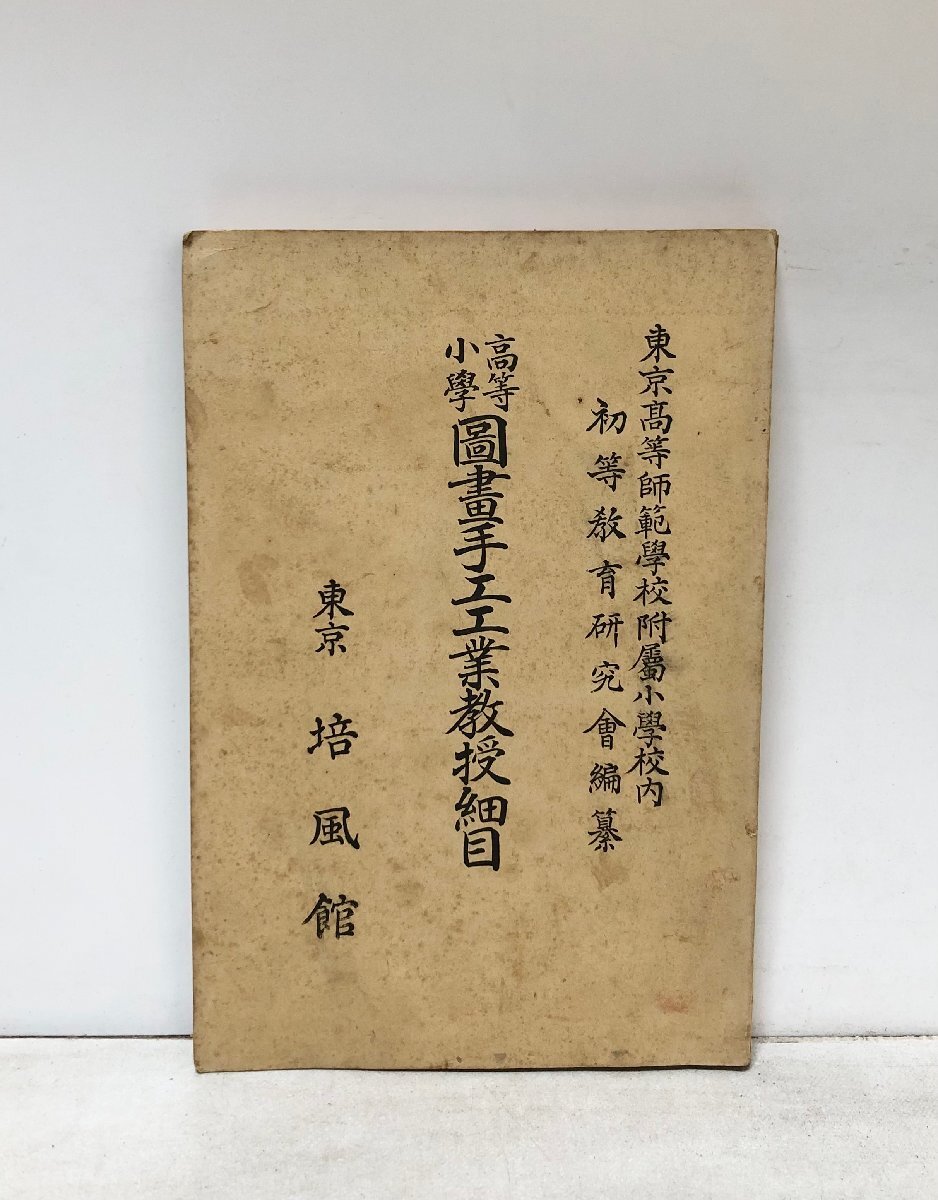 東京高等師範學校附屬小學校内
初等教育研究會編纂
高等
小學
圖畫手工工業教授細目
東京 培風館